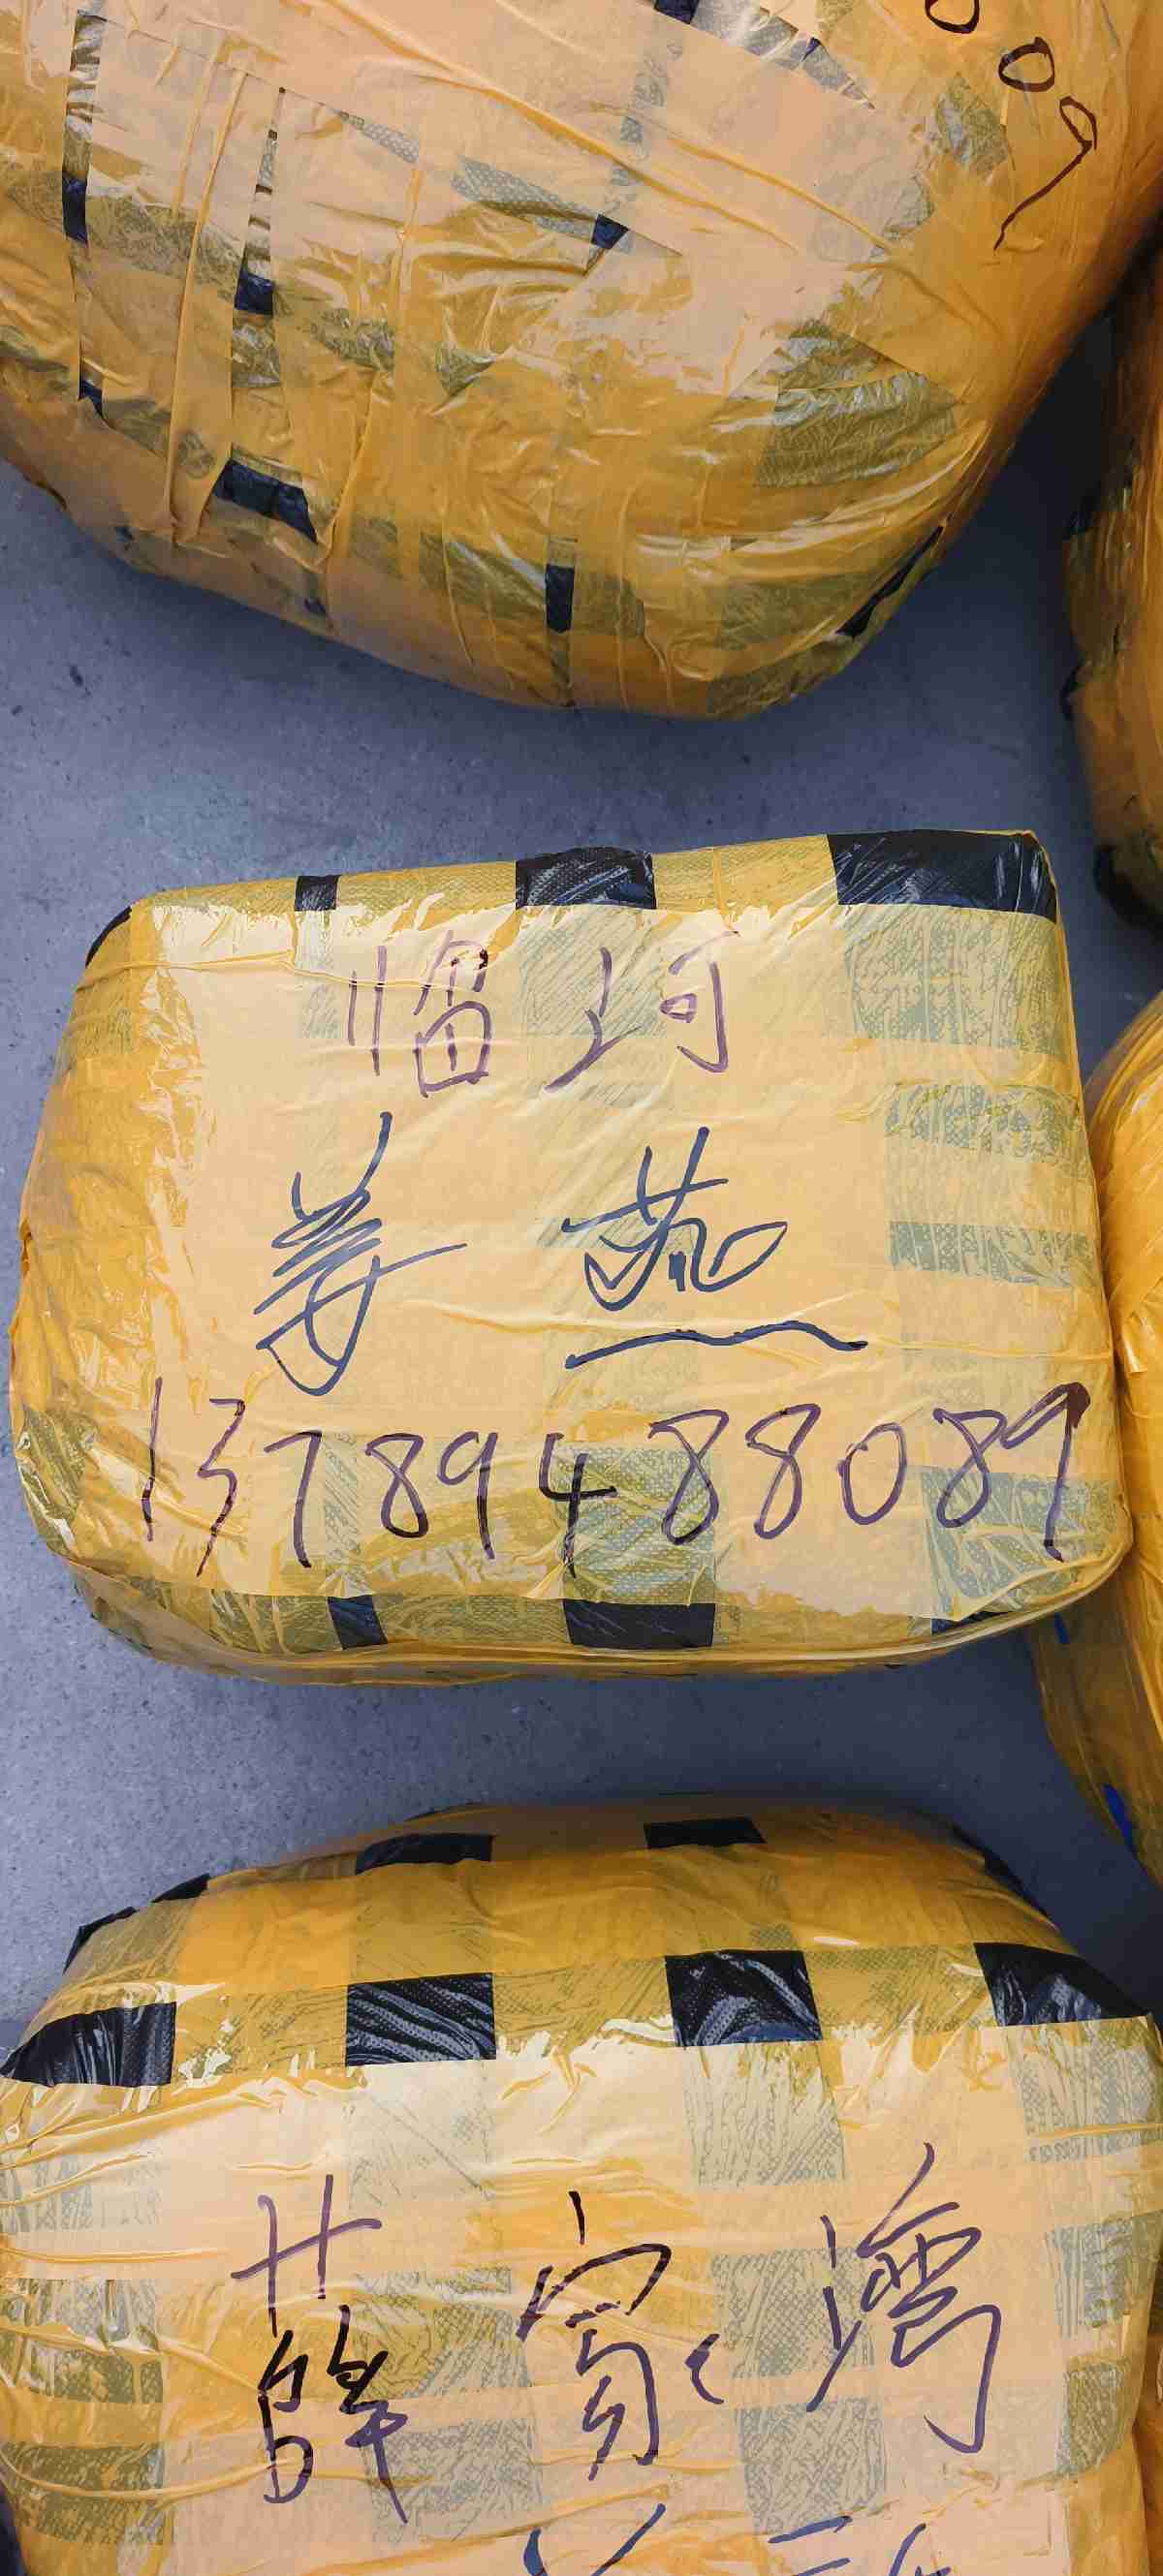 009
临河
姜燕
13789488089
薛家湾